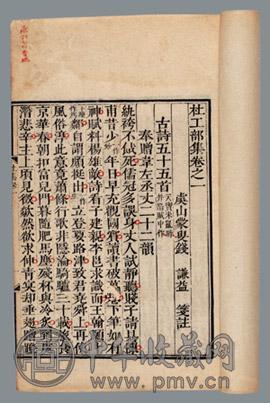 杜工部集卷之一
虞山蒙叟錢 謙益 箋註
古詩五十五首 天寶未亂時并陷賊中作
奉贈韋左丞丈二十二韻
紈袴不餓死儒冠多誤身丈人試靜聽賤子請具陳
甫昔少年日早充觀國賓讀書破萬卷下筆如有
神賦料楊雄敵詩看子建親李邕求識面王翰願
鄰自謂頗挺出立登要路津致君堯舜上再使
風俗淳此意竟蕭條行歌非隱淪騎驢三十載旅食
京華春朝扣富兒門暮隨肥馬塵殘杯與冷炙到處
潛悲辛主上頃見徵欻然欲求伸青冥却垂翅蹭蹬
中華收藏网
www.pmv.cn